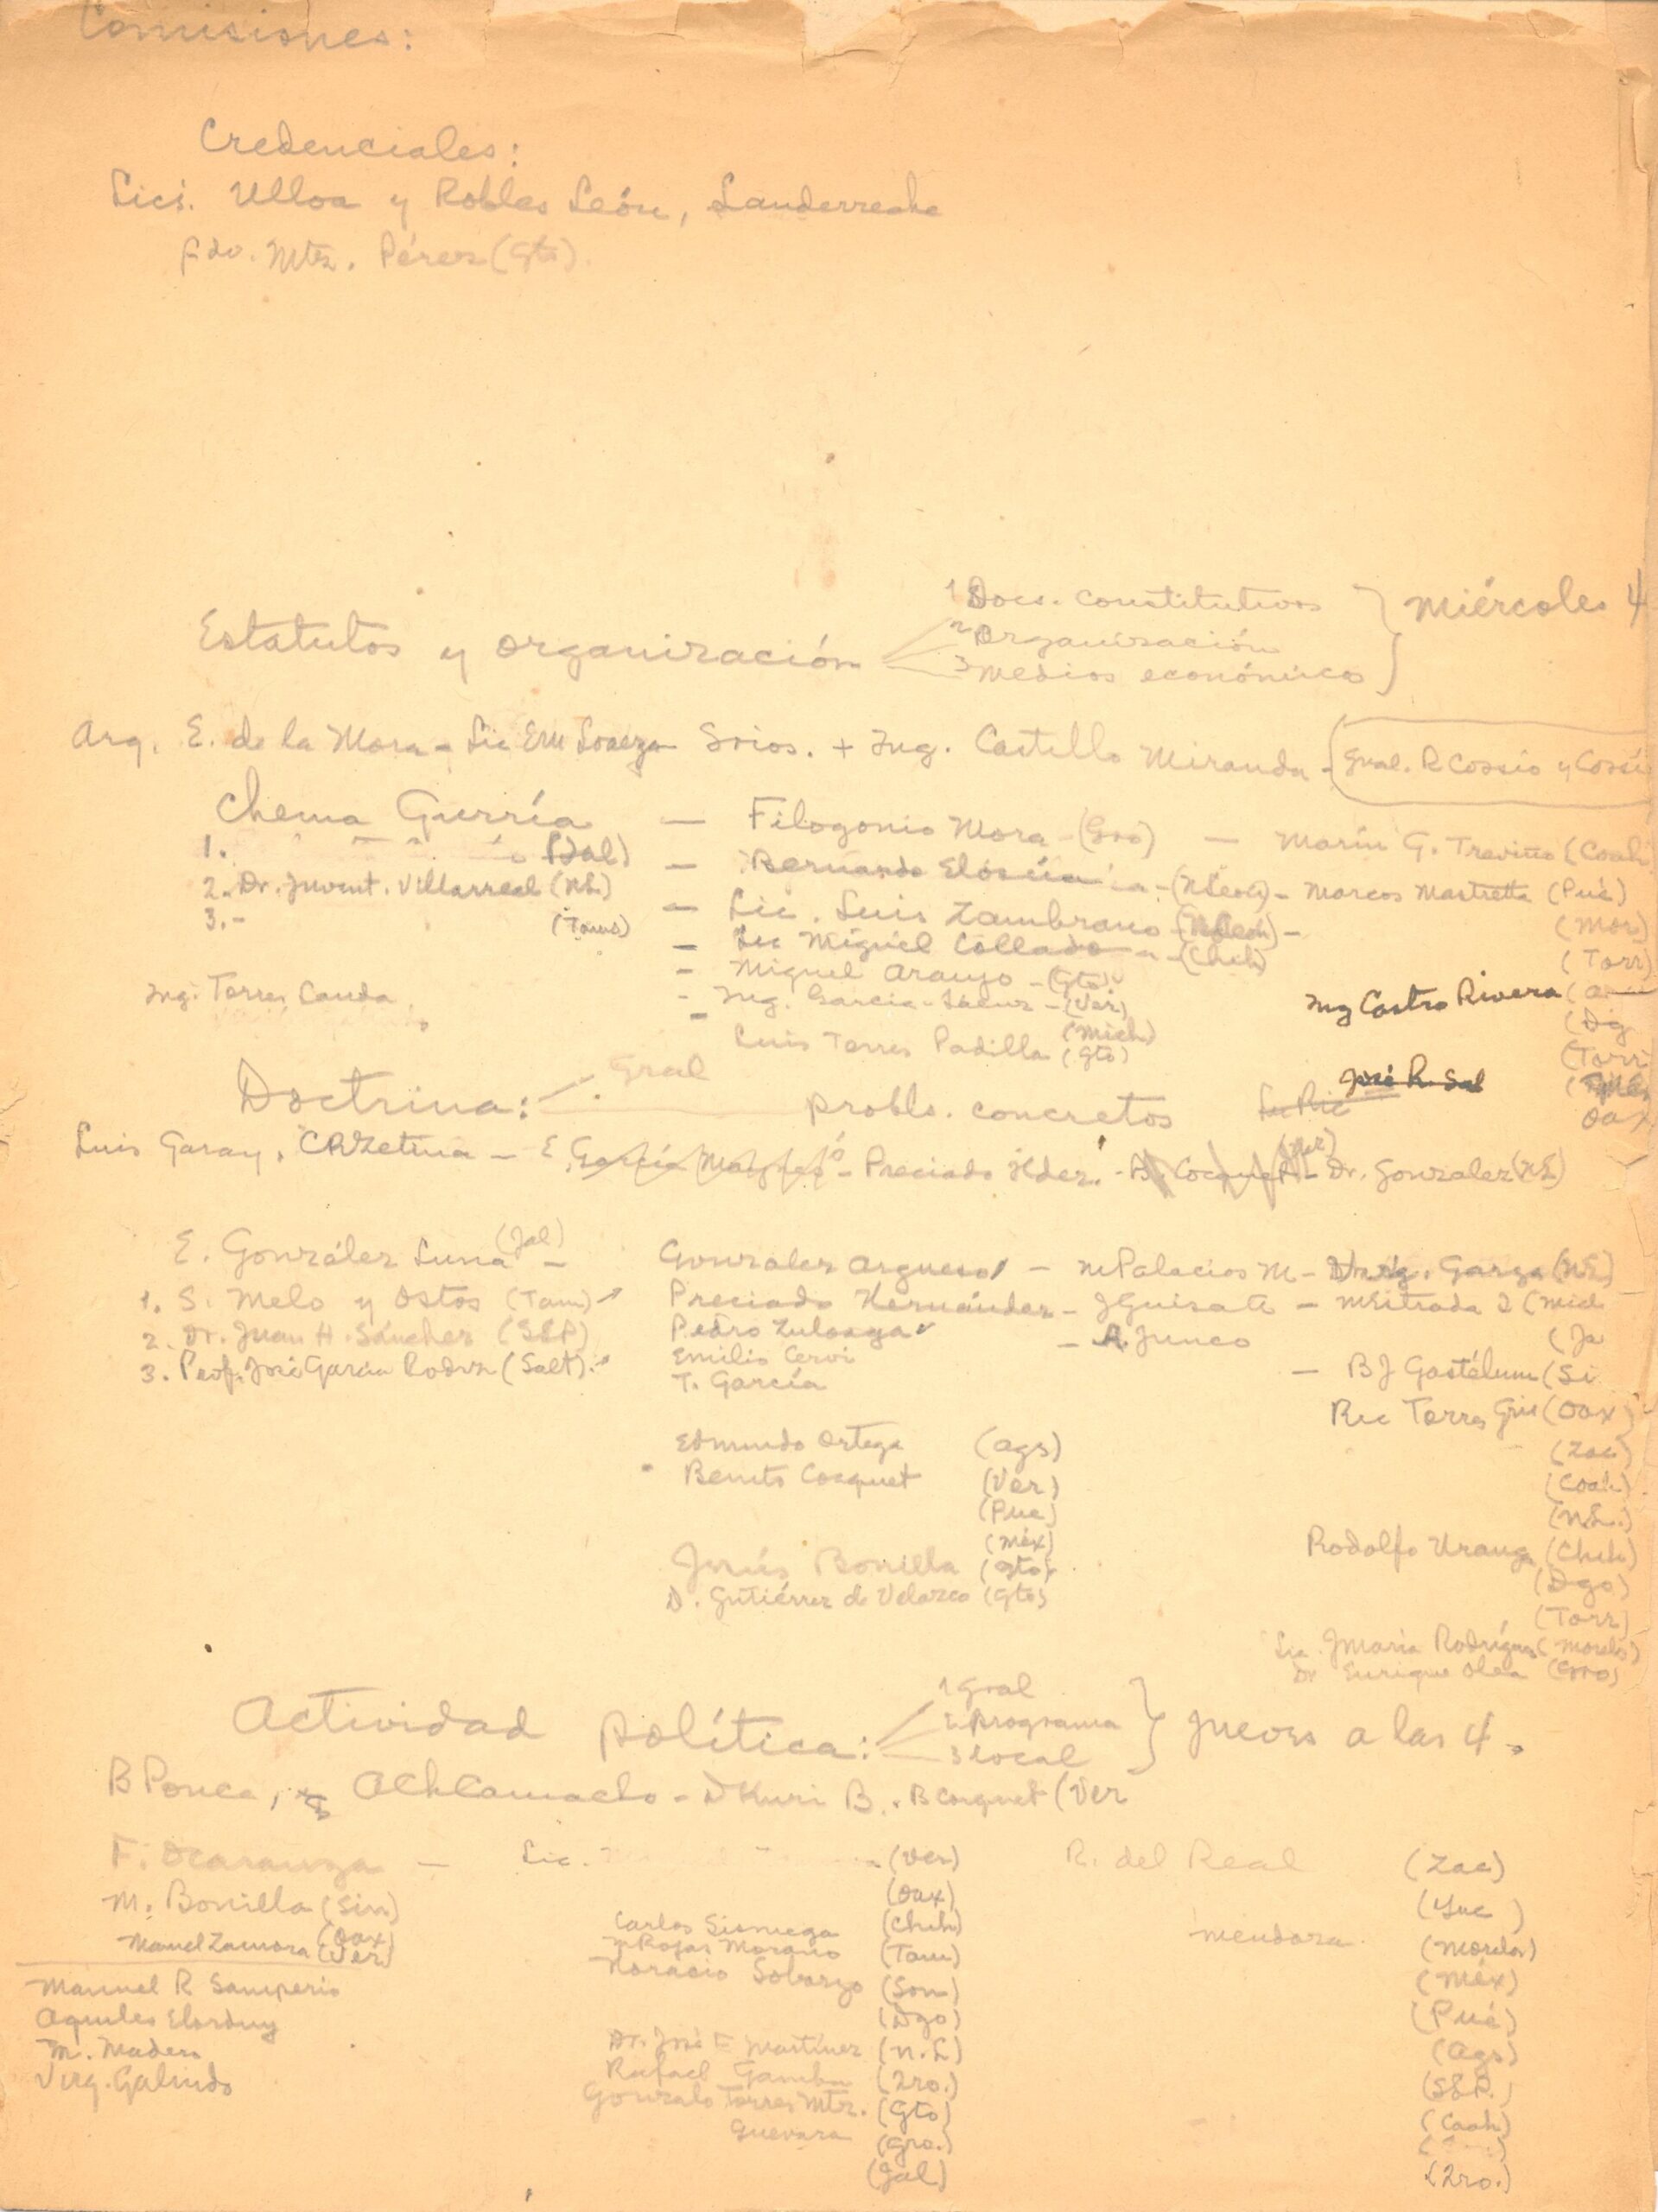 Comisiones:
Credenciales:
Lics. Ulloa y Robles León, Landerreche
Fdo. Mtz. Pérez (Gto).
Estatutos y organización
1 Docs. constitutivos
2 Organización
3 medios económicos
Miércoles 4
Arq. E. de la Mora - Lic Em Loaeza Srios. + Ing. Castillo Miranda - (Gral. R Cossio y Cossí
Chema Gurría — Filogonio Mora - (Gro) — Marín G. Treviño (Coah
1. (Jal) — Bernardo Elosúa - (N León) - Marcos Mastretta (Pué)
2. Dr. Juvent. Villarreal (NL) — Lic. Luis Zambrano - (N León) - (Mor)
3. - (Tams) — Lic Miguel Collado - (Chih) (Torr)
- Miguel Araujo - (Gto)
Ing. Torres Canda - Ing. Garcia - (Ver) Ing Castro Rivera
(Mich) (Dg
Luis Torres Padilla (Gto) (Torr
Doctrina:
Gral
probls. concretos
José R. Sal
Oax
Luis Garay, CRZetina - E. García Maynes - Preciado Hder. - B. Cocquet (Ver) - Dr. Gonzalez (NL)
E. González Luna (Jal) - Gonzalez Argueso - M Palacios M - Virg. Garza (NL)
1. S. Melo y Ostos (Tam) Preciado Hernández - J Guisa A - M Estrada I (Mich
2. Dr. Juan H. Sánchez (SLP) Pedro Zuloaga - A. Junco (Ja
3. Prof. José García Rodrz (Salt). Emilio Cervi - B J Gastélum (Si
T. García Ric Torres (Oax)
Edmundo Ortega (Ags) (Zac)
Benito Cocquet (Ver) (Coah)
(Pue) (N.L.)
(Méx) Rodolfo Uranga (Chih)
Jesús Bonilla (Gto) (Dgo)
D. Gutiérrez de Velazco (Gto) (Torr)
Lic. J María Rodríguez (Morelos)
Dr Enrique Olea (Gro)
Actividad política:
1 Gral
2 Programa
3 local
Jueves a las 4.
B Ponce, Camacho - D Kuri B. . B Cocquet (Ver
F. Ocaranza — Lic. (Ver) R. del Real (Zac)
M. Bonilla (Sin) (Oax) (Yuc)
(Oax) Carlos Sisniega (Chih) Mendoza (Morelos)
Manuel Zamora (Ver) M Rojas Morano (Tam) (Méx)
Manuel R Samperio Horacio Sobarzo (Son) (Pué)
Aquiles Elorduy (Dgo) (Ags)
M. Madero Dr. José F Martínez (N.L) (SLP.)
Virg. Galindo Rafael Gamba (Qro.) (Coah)
Gonzalo Torres Mtz. (Gto)
Guevara (Gro.)
(Jal) (Qro.)